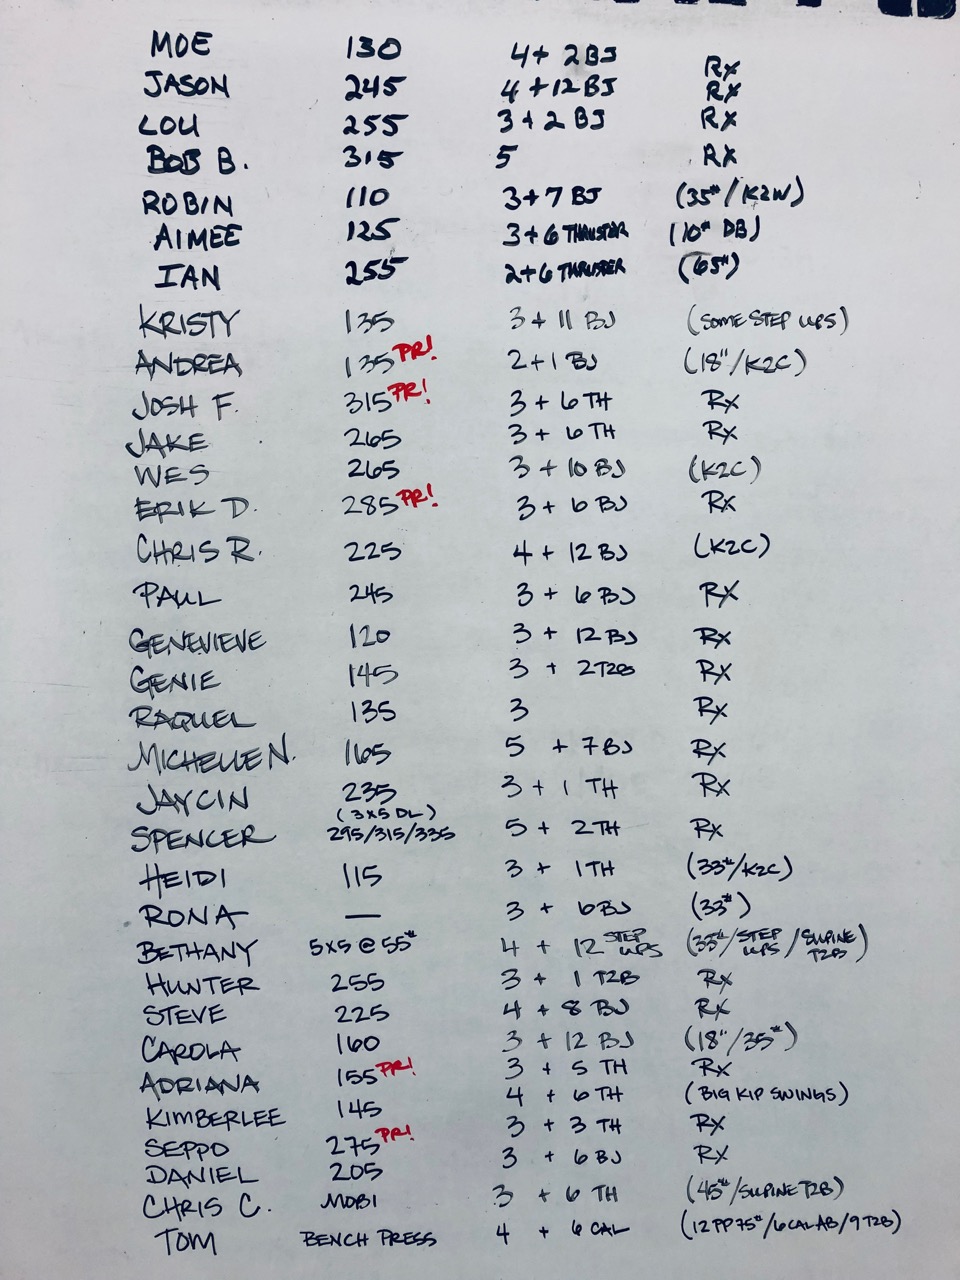 MOE 130 4+ 2BJ Rx
JASON 245 4 +12 BJ Rx
LOU 255 3+2 BJ Rx
BOB B. 315 5 Rx
ROBIN 110 3+7 BJ (35#/K2W)
AIMEE 125 3+6 THRUSTER (10# DB)
IAN 255 2+6 THRUSTER (65#)
KRISTY 135 3 + 11 BJ (SOME STEP UPS)
ANDREA 135 PR! 2+1 BJ (18"/K2C)
JOSH F. 315 PR! 3 + 6 TH Rx
JAKE 265 3 + 6 TH Rx
WES 265 3 + 10 BJ (K2C)
ERIK D. 285 PR! 3 + 6 BJ Rx
CHRIS R. 225 4 + 12 BJ (K2C)
PAUL 245 3 + 6 BJ Rx
GENEVIEVE 120 3 + 12 BJ Rx
GENIE 145 3 + 2 T2B Rx
RAQUEL 135 3 Rx
MICHELLE N. 165 5 + 7 BJ Rx
JAYCIN 235 3 + 1 TH Rx
(3x5 DL)
SPENCER 295/315/335 5 + 2 TH Rx
HEIDI 115 3 + 1 TH (33#/K2C)
RONA — 3 + 6 BJ (33#)
BETHANY 5x5 @ 55# 4 + 12 STEP UPS (33#/STEP UPS/SUPINE T2B)
HUNTER 255 3 + 1 T2B Rx
STEVE 225 4 + 8 BJ Rx
CAROLA 160 3 + 12 BJ (18"/35#)
ADRIANA 155 PR! 3 + 5 TH Rx
KIMBERLEE 145 4 + 6 TH (BIG KIP SWINGS)
SEPPO 275 PR! 3 + 3 TH Rx
DANIEL 205 3 + 6 BJ Rx
CHRIS C. MOBI 3 + 6 TH (45#/SUPINE T2B)
TOM BENCH PRESS 4 + 6 CAL (12 PP 75#/6 CAL AB/9 T2B)